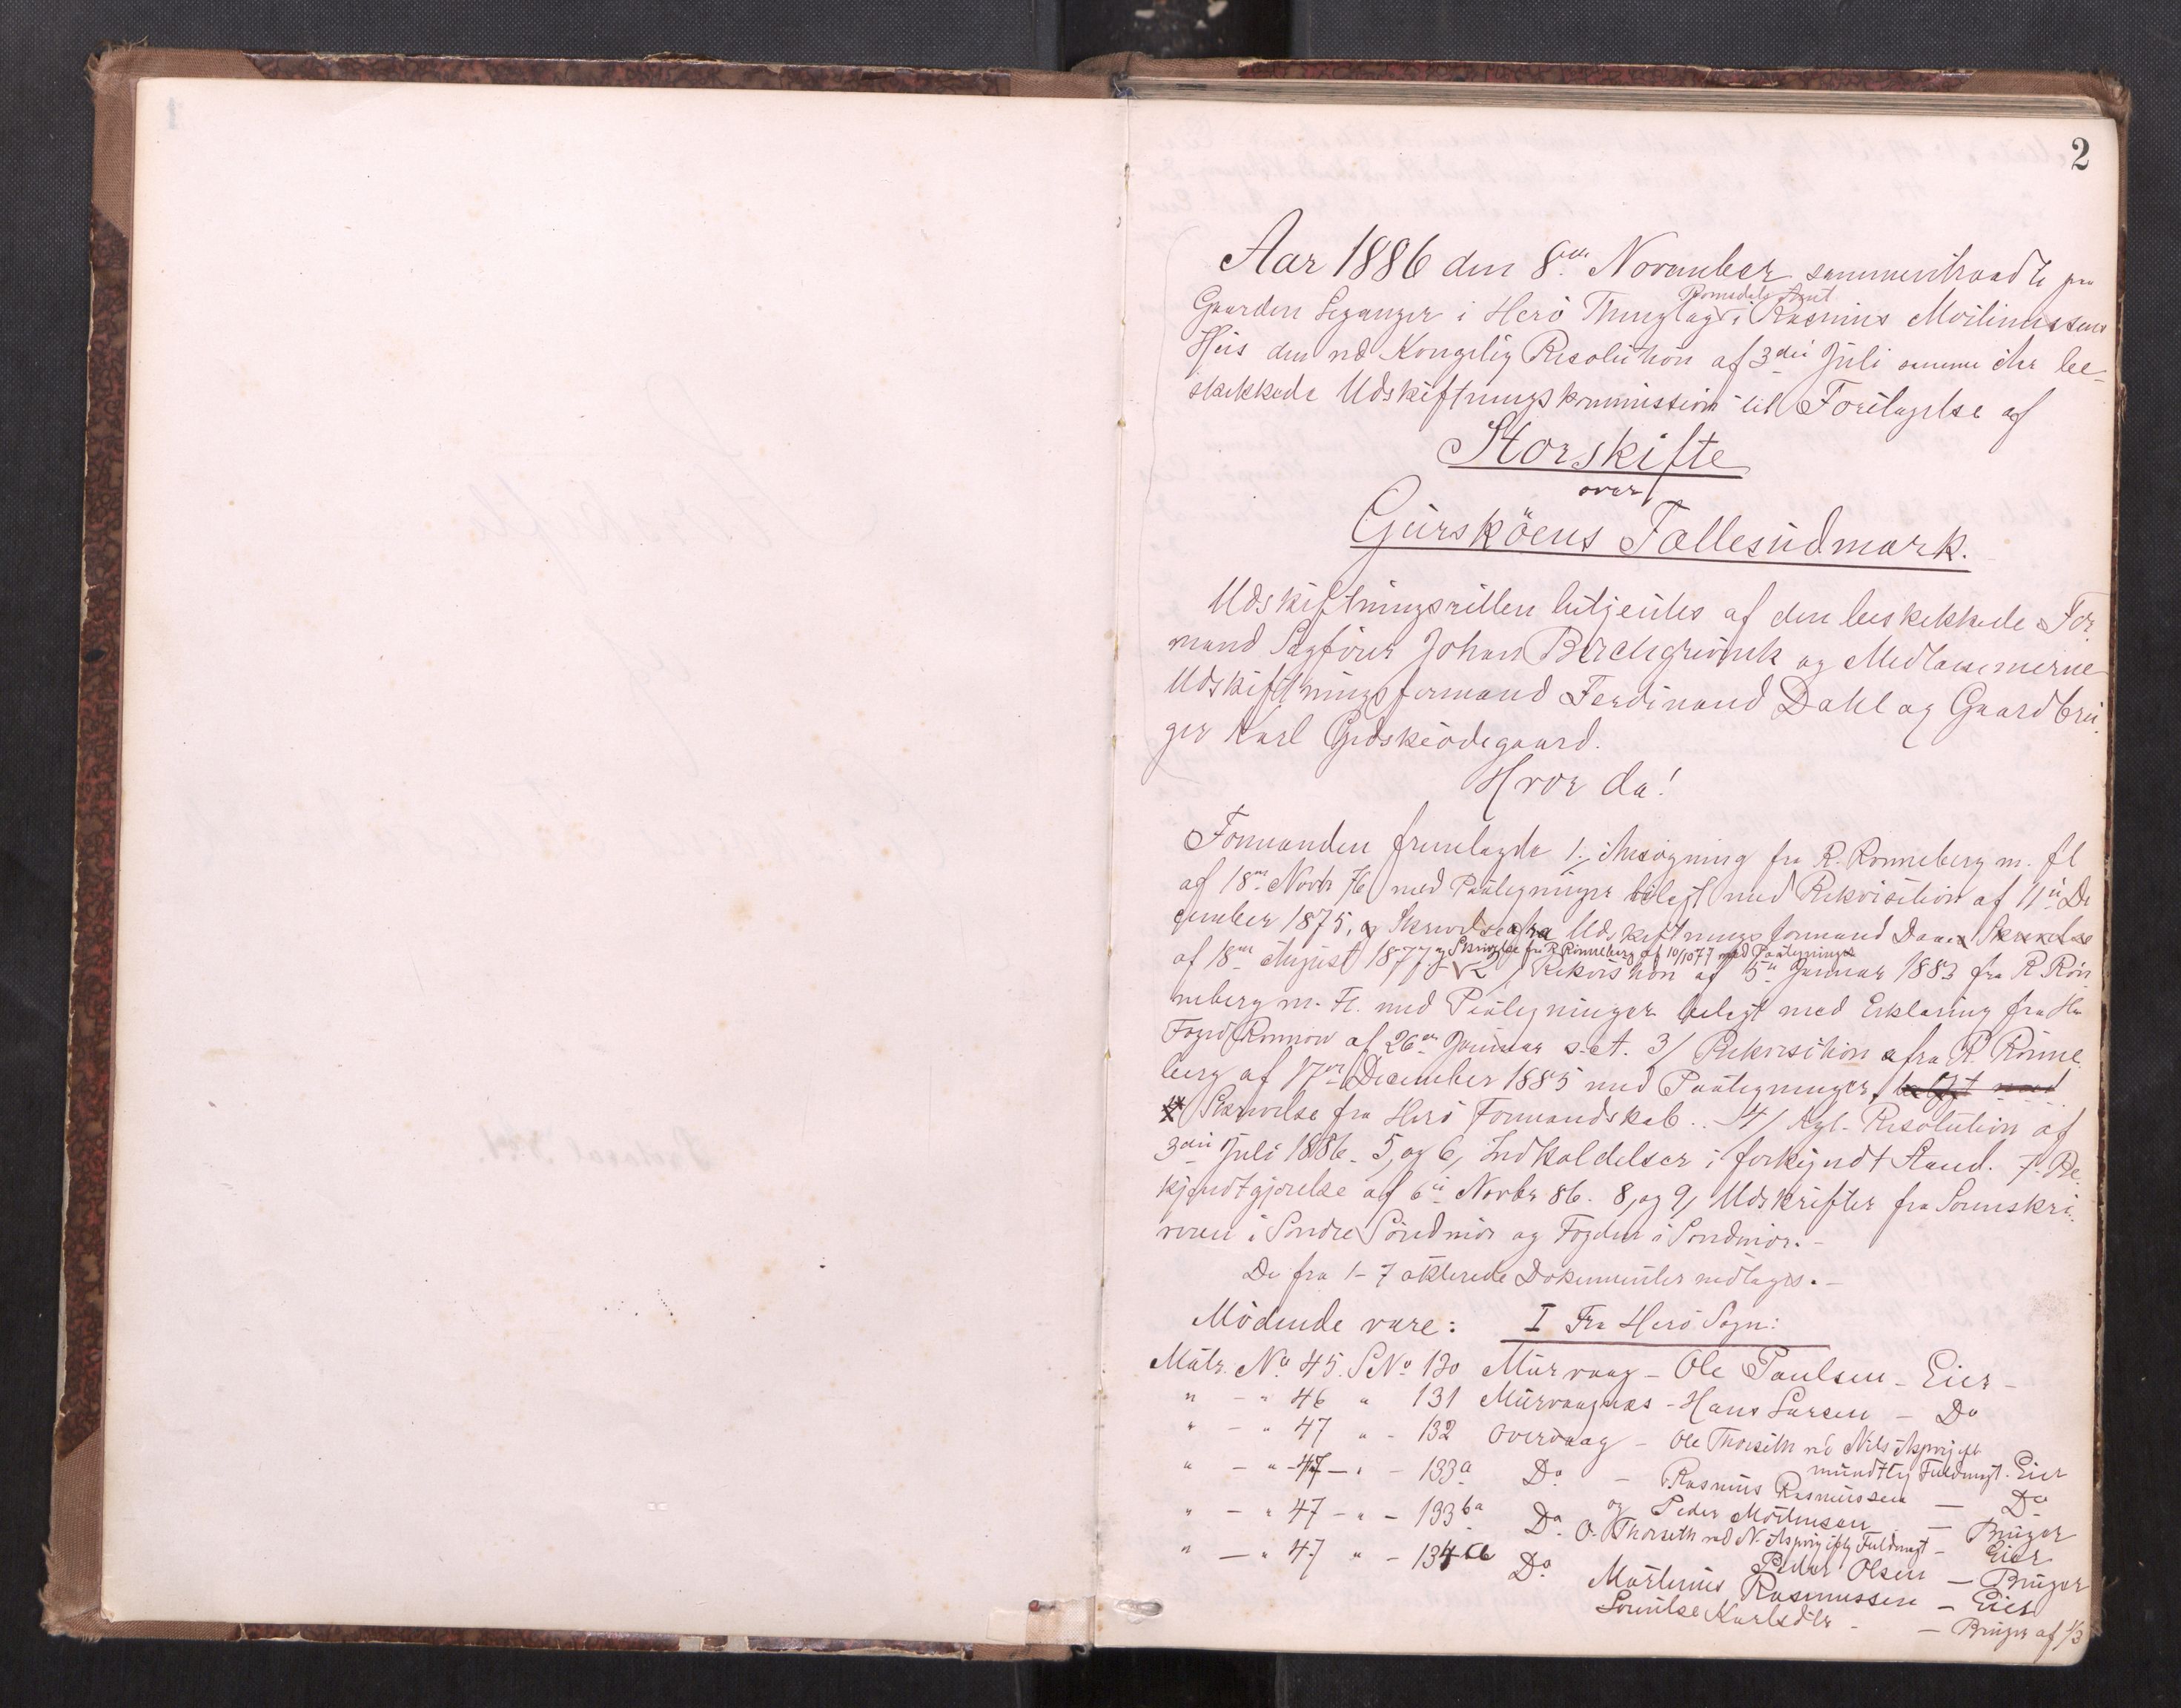 2
Aar 1886 den 8de November sammentraadte paa
Romsdals Amt
Gaarden Leganger i Herö Thinglag i Rasmus Mortinussens
Hus den ved Kongelig Resolution af 3die Juli samme Aar be-
skikkede Udskiftningskommission til Foretagelse af
Storskifte
over
Gurskøens Fællesudmark.
Udskiftningsretten betjentes af den beskikkede For-
mand Sagfører Johan og Medlemmerne
Udskiftningsformand Ferdinand Dahl og Gaardbru-
ger Karl Gjødskeødegaard.
Hvor da!
Formanden fremlagde 1, Ansögning fra R. Rønneberg m. fl
af 18de Novbr 76 med Paategninger bilagt med Rekvisition af 11te De
cember 1875, og Skrivelse fra Udskiftningsformand
af 18de August 1877 og Skrivelse fra R. Rønneberg af 10/10 77 med Paategninger
2, Rekvisition af 5te Januar 1883 fra R. Rön
neberg m. Fl. med Paategninger belagt med Erklæring fra Hr
Foged Rønnow af 26de Januar s. A. 3/ Rekvisition fra R. Rønne
berg af 17de December 1885 med Paategninger, belagt med
Skrivelse fra Herö Formandskab.. 4/ Kgl. Resolution af
3die Juli 1886. 5, og 6, Indkaldelser i forkyndt Stand. 7. Be
kjendtgjørelse af 6te Novbr 86. 8, og 9, Udskrifter fra Sorenskri-
veren i Søndre Söndmör og Fogden i Søndmør.-
De fra 1-7 akterede Dokumenter vedtages.-
Mödende vare: I Fra Herö Sogn:
Matr. No 45. LNo 130 Murvaag - Ole Paulsen - Eier -
" - " 46 " 131 Murvaagnæs - Hans Larsen - Do
" - " 47 " - 132 Overvaag - Ole Thorseth ved Nils
mundtlig Fuldmagt. Eier
" - " - 47 - " - 133a Do - Rasmus Rasmussen - Do
og Peder Mortensen - Bruger
" - " 47 - " - 133ba Do O. Thorseth ved N. Fuldmagt - Eier
Peder Olsen - Bruger
" - " 47 " - 134 Do Martinus Rasmussen - Eier
Karlsdtr - - Bruger af 1/3